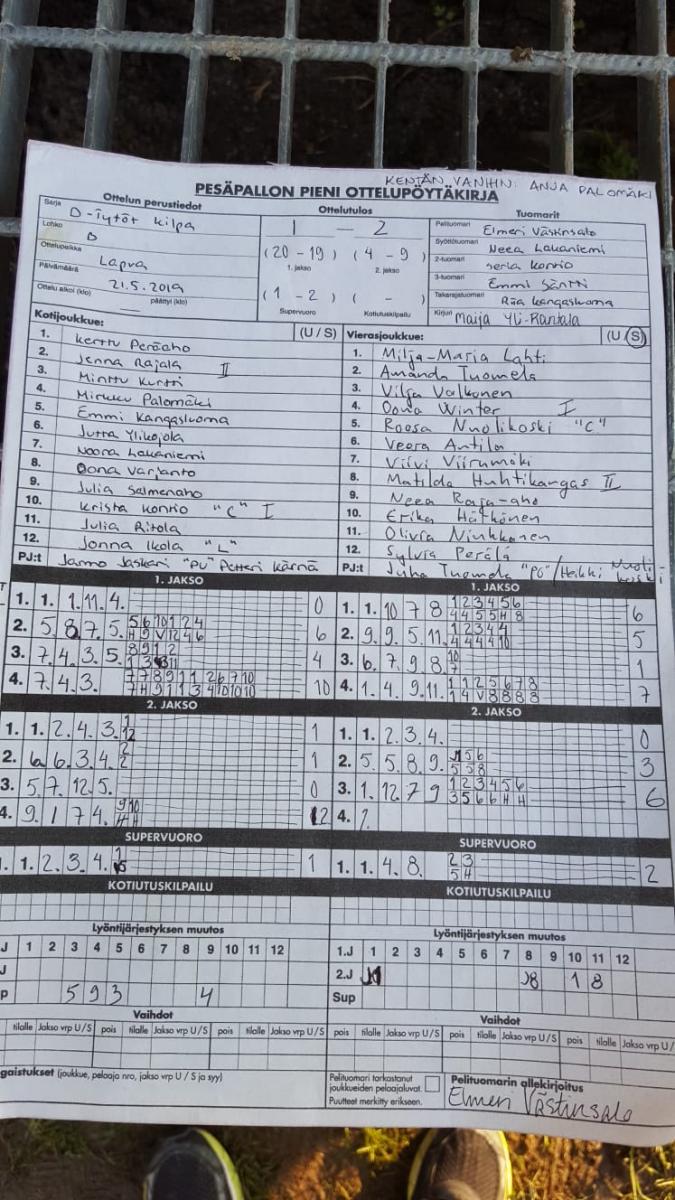 KENTÄN VANHIN: ANJA PALOMÄKI
PESÄPALLON PIENI OTTELUPÖYTÄKIRJA
Ottelun perustiedot
Sarja D-tytöt kilpa
Lohko B
Ottelupaikka Lapua
Päivämäärä 21.5.2019
Ottelu alkoi (klo) — päättyi (klo)
Ottelutulos
1 – 2
(20 – 19) (4 – 9)
1. jakso 2. jakso
(1 – 2) ( – )
Supervuoro Kotiutuskilpailu
Tuomarit
Pelituomari Elmeri Västinsalo
Syöttötuomari Neea Lakaniemi
2-tuomari Konrio
3-tuomari Emmi Säntti
Takarajatuomari Kangasluoma
Kirjuri Maija Yli-Rantala
Kotijoukkue: (U / S)
1. Kerttu Peräaho
2. Jenna Rajala II
3. Minttu Kurtti
4. Mirkku Palomäki
5. Emmi Kangasluoma
6. Jutta Ylikojola
7. Noona Lakaniemi
8. Oona Varjanto
9. Julia Salmenaho
10. Krista Konrio "C" I
11. Julia Ritola
12. Jonna Ikola "L"
PJ:t Jarmo Jaskari "PU" Petteri Kärnä
Vierasjoukkue: (U / S)
1. Milja-Maria Lahti
2. Amanda Tuomela
3. Vilja Valkonen
4. Oona Winter I
5. Roosa Nuolikoski "C"
6. Veera Antila
7. Viivi Viirumäki
8. Matilda Huhtikangas II
9. Neea Raja-aho
10. Erika Hätkönen
11. Olivia Niukkanen
12. Sylvia Perälä
PJ:t Juha Tuomela "PU" / Heikki Nuolikoski
1. JAKSO
1. 1. 1. 11. 4. 0
2. 5. 8. 7. 5. 6
3. 7. 4. 3. 5. 4
4. 7. 4. 3. 10
2. JAKSO
1. 1. 2. 4. 3. 1
2. 6. 6. 3. 4. 1
3. 5. 7. 12. 5. 0
4. 9. 1 7 4. 2
SUPERVUORO
1. 1. 2. 3. 4. 1
KOTIUTUSKILPAILU
1. JAKSO
1. 1. 10 7 8 1 2 3 4 5 6 6
4 4 5 5 H 8
2. 9. 9. 5. 11. 1 2 3 4 4 5
4 4 4 4 10
3. 6. 7. 9. 8. 10 1
7
4. 1. 4. 9. 11. 1 1 2 5 6 7 8 7
1 4 V 8 8 8 8
2. JAKSO
1. 1. 2. 3. 4. 0
2. 5. 5. 8. 9. 1 5 6 3
5 5 8
3. 1. 12. 7 9 1 2 3 4 5 6 6
3 5 6 6 H H
4. 7.
SUPERVUORO
1. 1. 4. 8. 2 3 2
5 H
KOTIUTUSKILPAILU
Lyöntijärjestyksen muutos
J 1 2 3 4 5 6 7 8 9 10 11 12
J
p 5 9 3 4
Lyöntijärjestyksen muutos
1.J 1 2 3 4 5 6 7 8 9 10 11 12
2.J 8 1 8
Sup
Vaihdot
tilalle Jakso vrp U/S pois tilalle Jakso vrp U/S pois tilalle Jakso vrp U/S
Vaihdot
pois tilalle Jakso vrp U/S pois tilalle Jakso vrp U/S pois tilalle Jakso vrp U/
gaistukset (joukkue, pelaaja nro, jakso vrp U / S ja syy)
Pelituomari tarkastanut
joukkueiden pelaajaluvat.
Puutteet merkitty erikseen.
Pelituomarin allekirjoitus
Elmeri Västinsalo